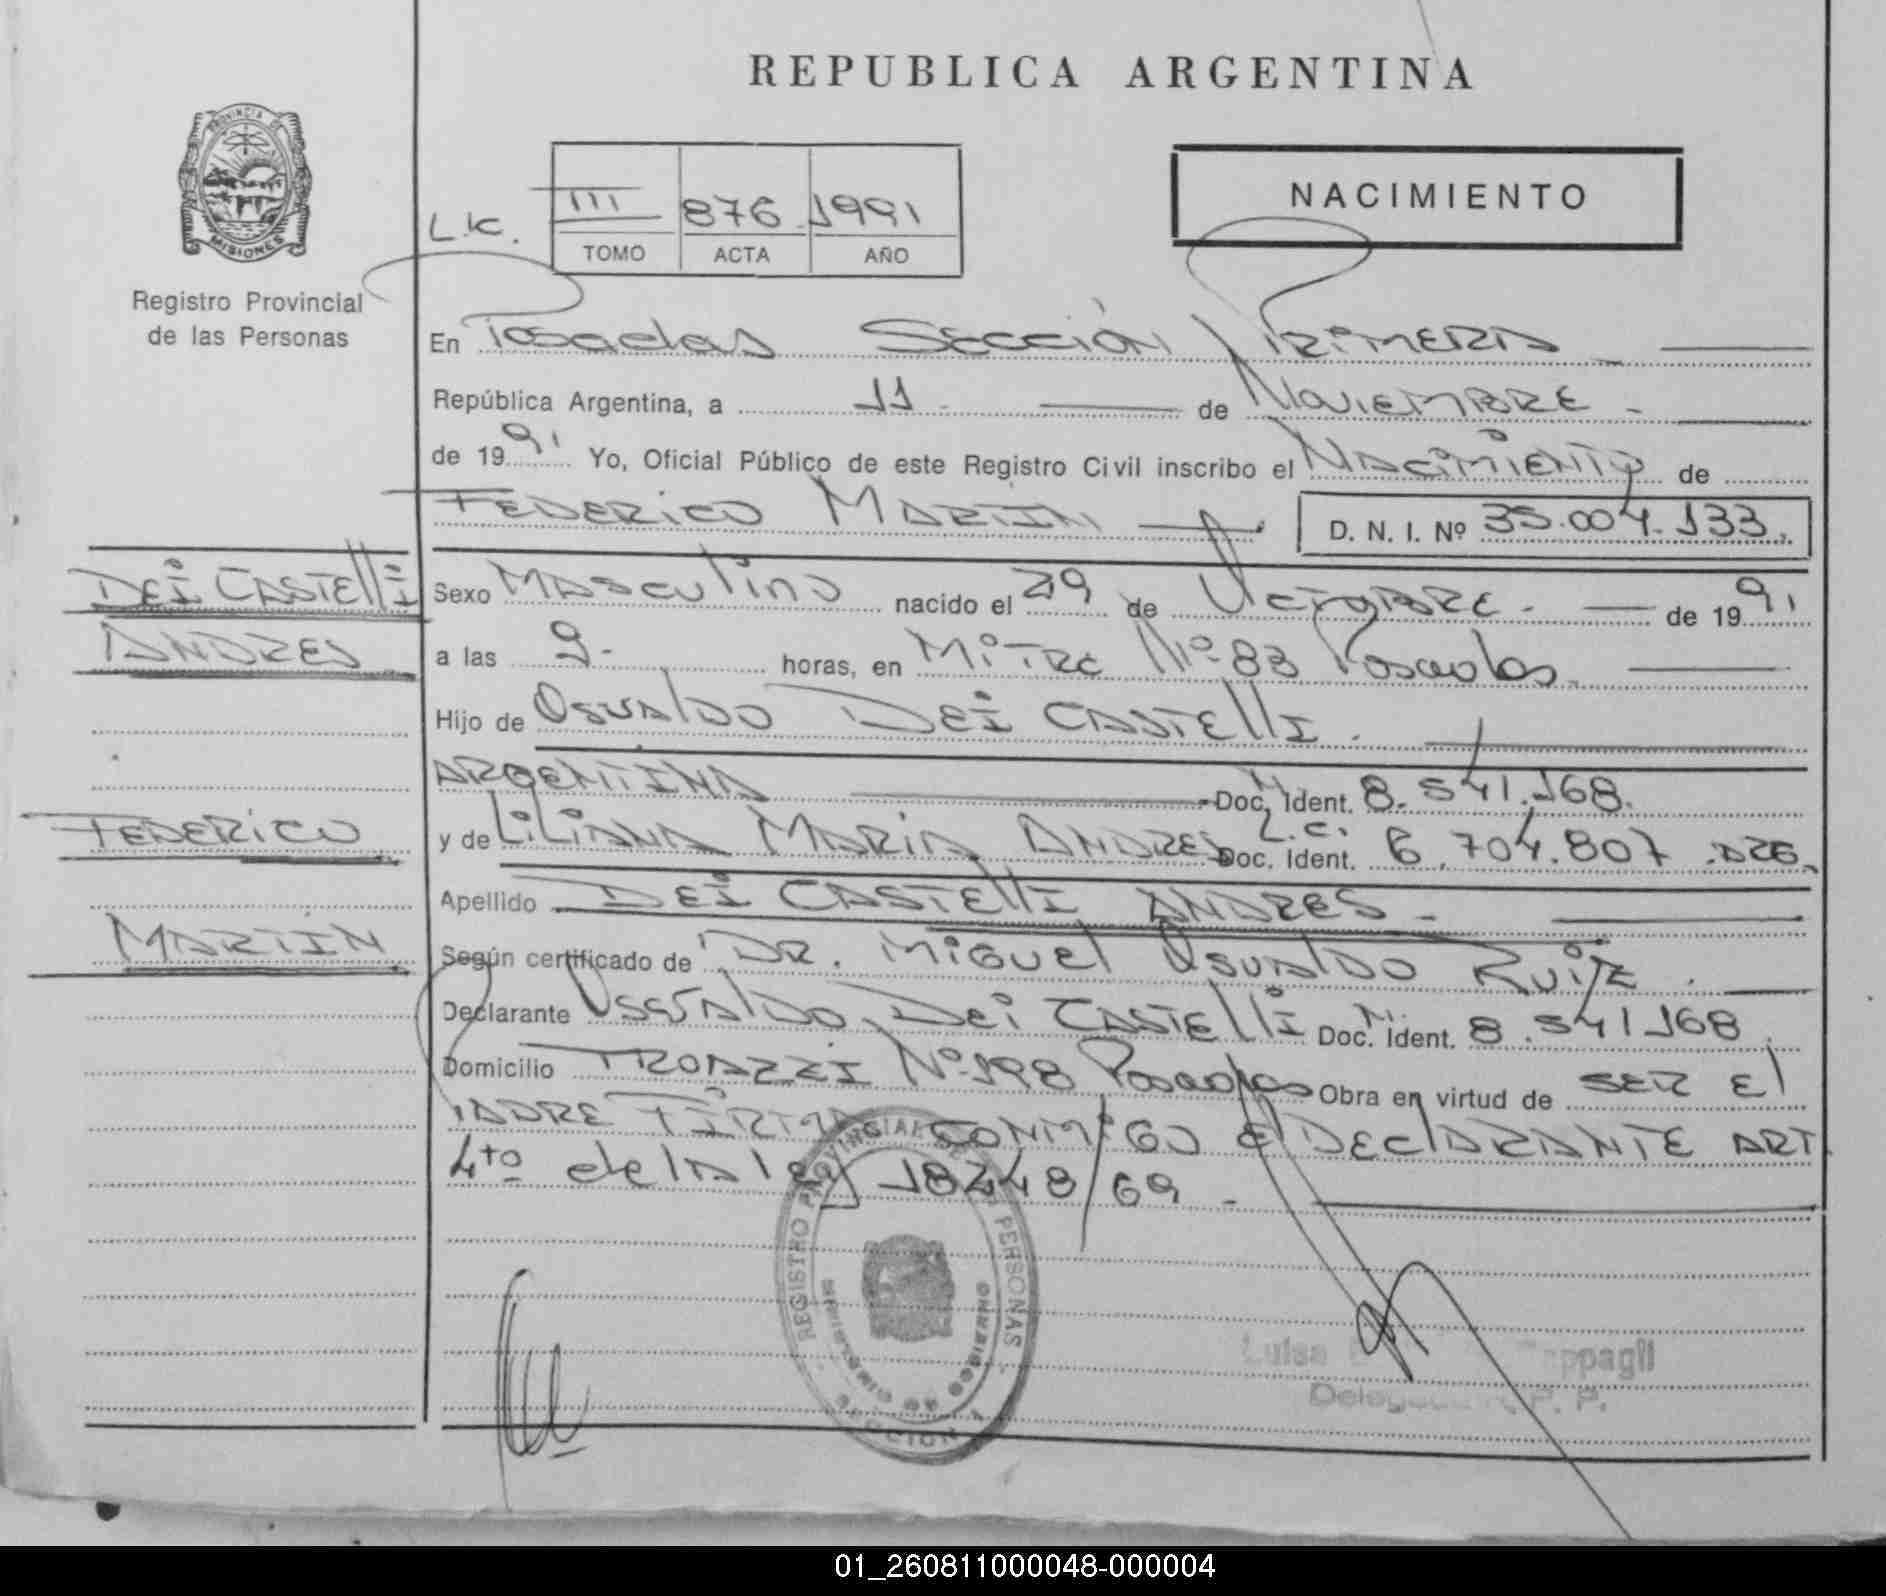 REPUBLICA ARGENTINA
PROVINCIA DE
MISIONES
Registro Provincial
de las Personas
NACIMIENTO
L.K.
III 876 1991
TOMO ACTA AÑO
En Posadas Sección Primera
República Argentina, a 11 de Noviembre
de 1991 Yo, Oficial Público de este Registro Civil inscribo el Nacimiento de
Federico Martin D. N. I. Nº 35.004.133.
Dei Castelli
Andres
Federico
Martin
Sexo Masculino nacido el 29 de Octobre de 1991
a las 9 horas, en Mitre Nº 83 Posadas.
Hijo de Osvaldo Dei Castelli.
Argentina Doc. Ident. 8.541.168.
y de Liliana Maria Andres Doc. Ident. L.C. 6.704.807 .Arg.
Apellido Dei Castelli Andres
Según certificado de Dr. Miguel Osvaldo Ruiz
Declarante Osvaldo Dei Castelli Doc. Ident. 8.541168
Domicilio Nº 198 Posadas Obra en virtud de ser el
Padre Firma conmigo el declarante Art
4to de la ley 18248/69
REGISTRO PROVINCIAL DE PERSONAS
MINISTERIO DE GOBIERNO
SECCION
Luisa
P. P.
01_260811000048-000004